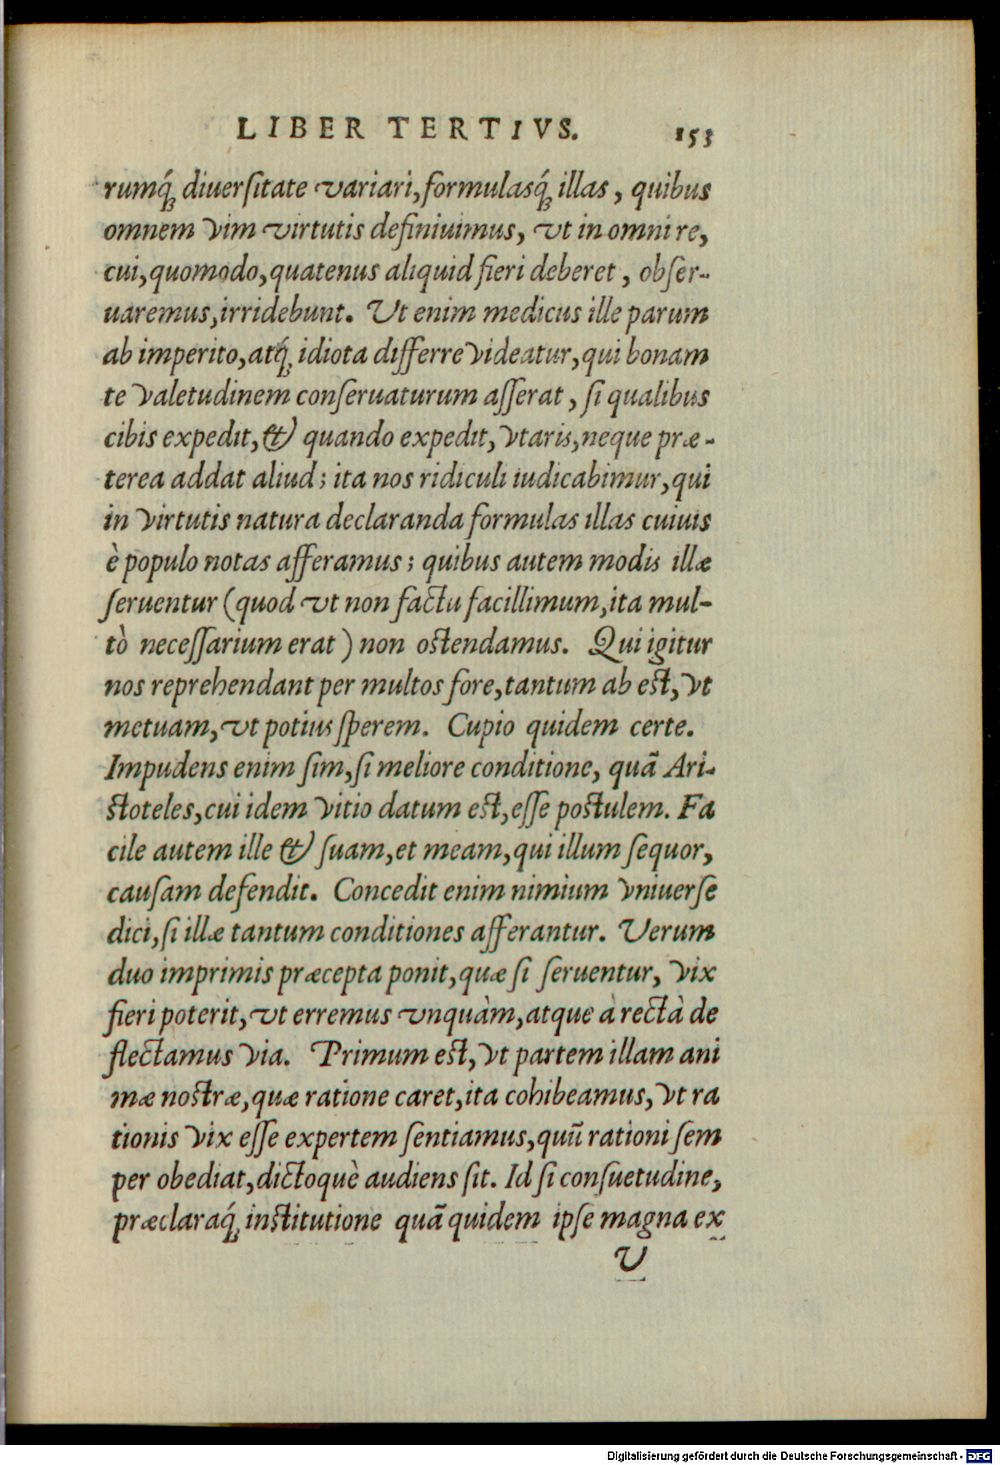 LIBER TERTIVS. 153
rumq́ꝫ diuerſitate variari, formulasq́ꝫ illas, quibus
omnem vim virtutis definiuimus, vt in omni re,
cui, quomodo, quatenus aliquid fieri deberet, obſer-
uaremus, irridebunt. Ut enim medicus ille parum
ab imperito, atq́ꝫ idiota differre videatur, qui bonam
te valetudinem conſeruaturum aſſerat, ſi qualibus
cibis expedit, & quando expedit, vtaris, neque præ-
terea addat aliud; ita nos ridiculi iudicabimur, qui
in virtutis natura declaranda formulas illas cuiuis
è populo notas afferamus; quibus autem modis illæ
ſeruentur (quod vt non factu facillimum, ita mul-
tò neceſſarium erat) non oſtendamus. Qui igitur
nos reprehendant per multos fore, tantum ab eſt, vt
metuam, vt potius ſperem. Cupio quidem certe.
Impudens enim ſim, ſi meliore conditione, quã Ari-
ſtoteles, cui idem vitio datum eſt, eſſe poſtulem. Fa
cile autem ille & ſuam, et meam, qui illum ſequor,
cauſam defendit. Concedit enim nimium vniuerſe
dici, ſi illæ tantum conditiones afferantur. Verum
duo imprimis præcepta ponit, quæ ſi ſeruentur, vix
fieri poterit, vt erremus vnquàm, atque à rectà de
flectamus via. Primum eſt, vt partem illam ani
mæ noſtræ, quæ ratione caret, ita cohibeamus, vt ra
tionis vix eſſe expertem ſentiamus, quũ rationi ſem
per obediat, dictoquè audiens ſit. Id ſi conſuetudine,
præclaraq́ꝫ inſtitutione quã quidem ipſe magna ex
V
Digitalisierung gefördert durch die Deutsche Forschungsgemeinschaft - DFG